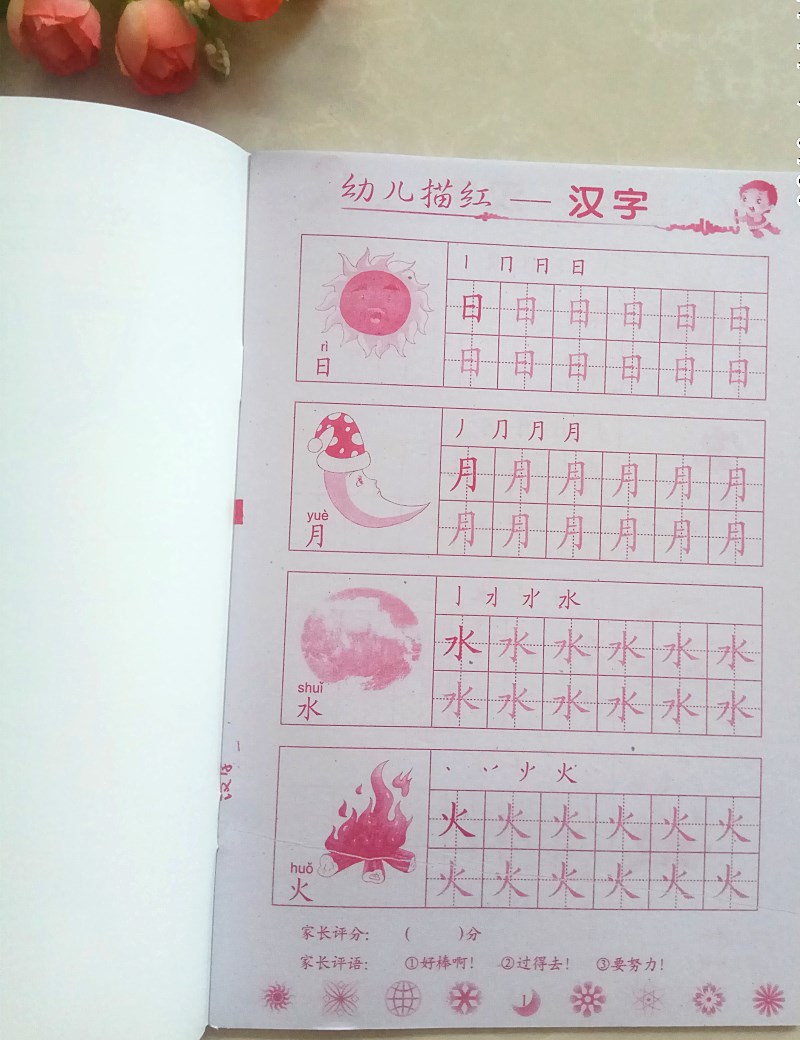 幼儿描红 — 汉字
丨 冂 日 日
rì
日
日 日 日 日 日 日
日 日 日 日 日 日
丿 ⺆ 月 月
yuè
月
月 月 月 月 月 月
月 月 月 月 月 月
亅 水
shuǐ
水
水 水 水 水 水 水
水 水 水 水 水 水
丶 丷 火 火
huǒ
火
火 火 火 火 火 火
火 火 火 火 火 火
家长评分： （ ）分
家长评语： ①好棒啊！ ②过得去！ ③要努力！
1